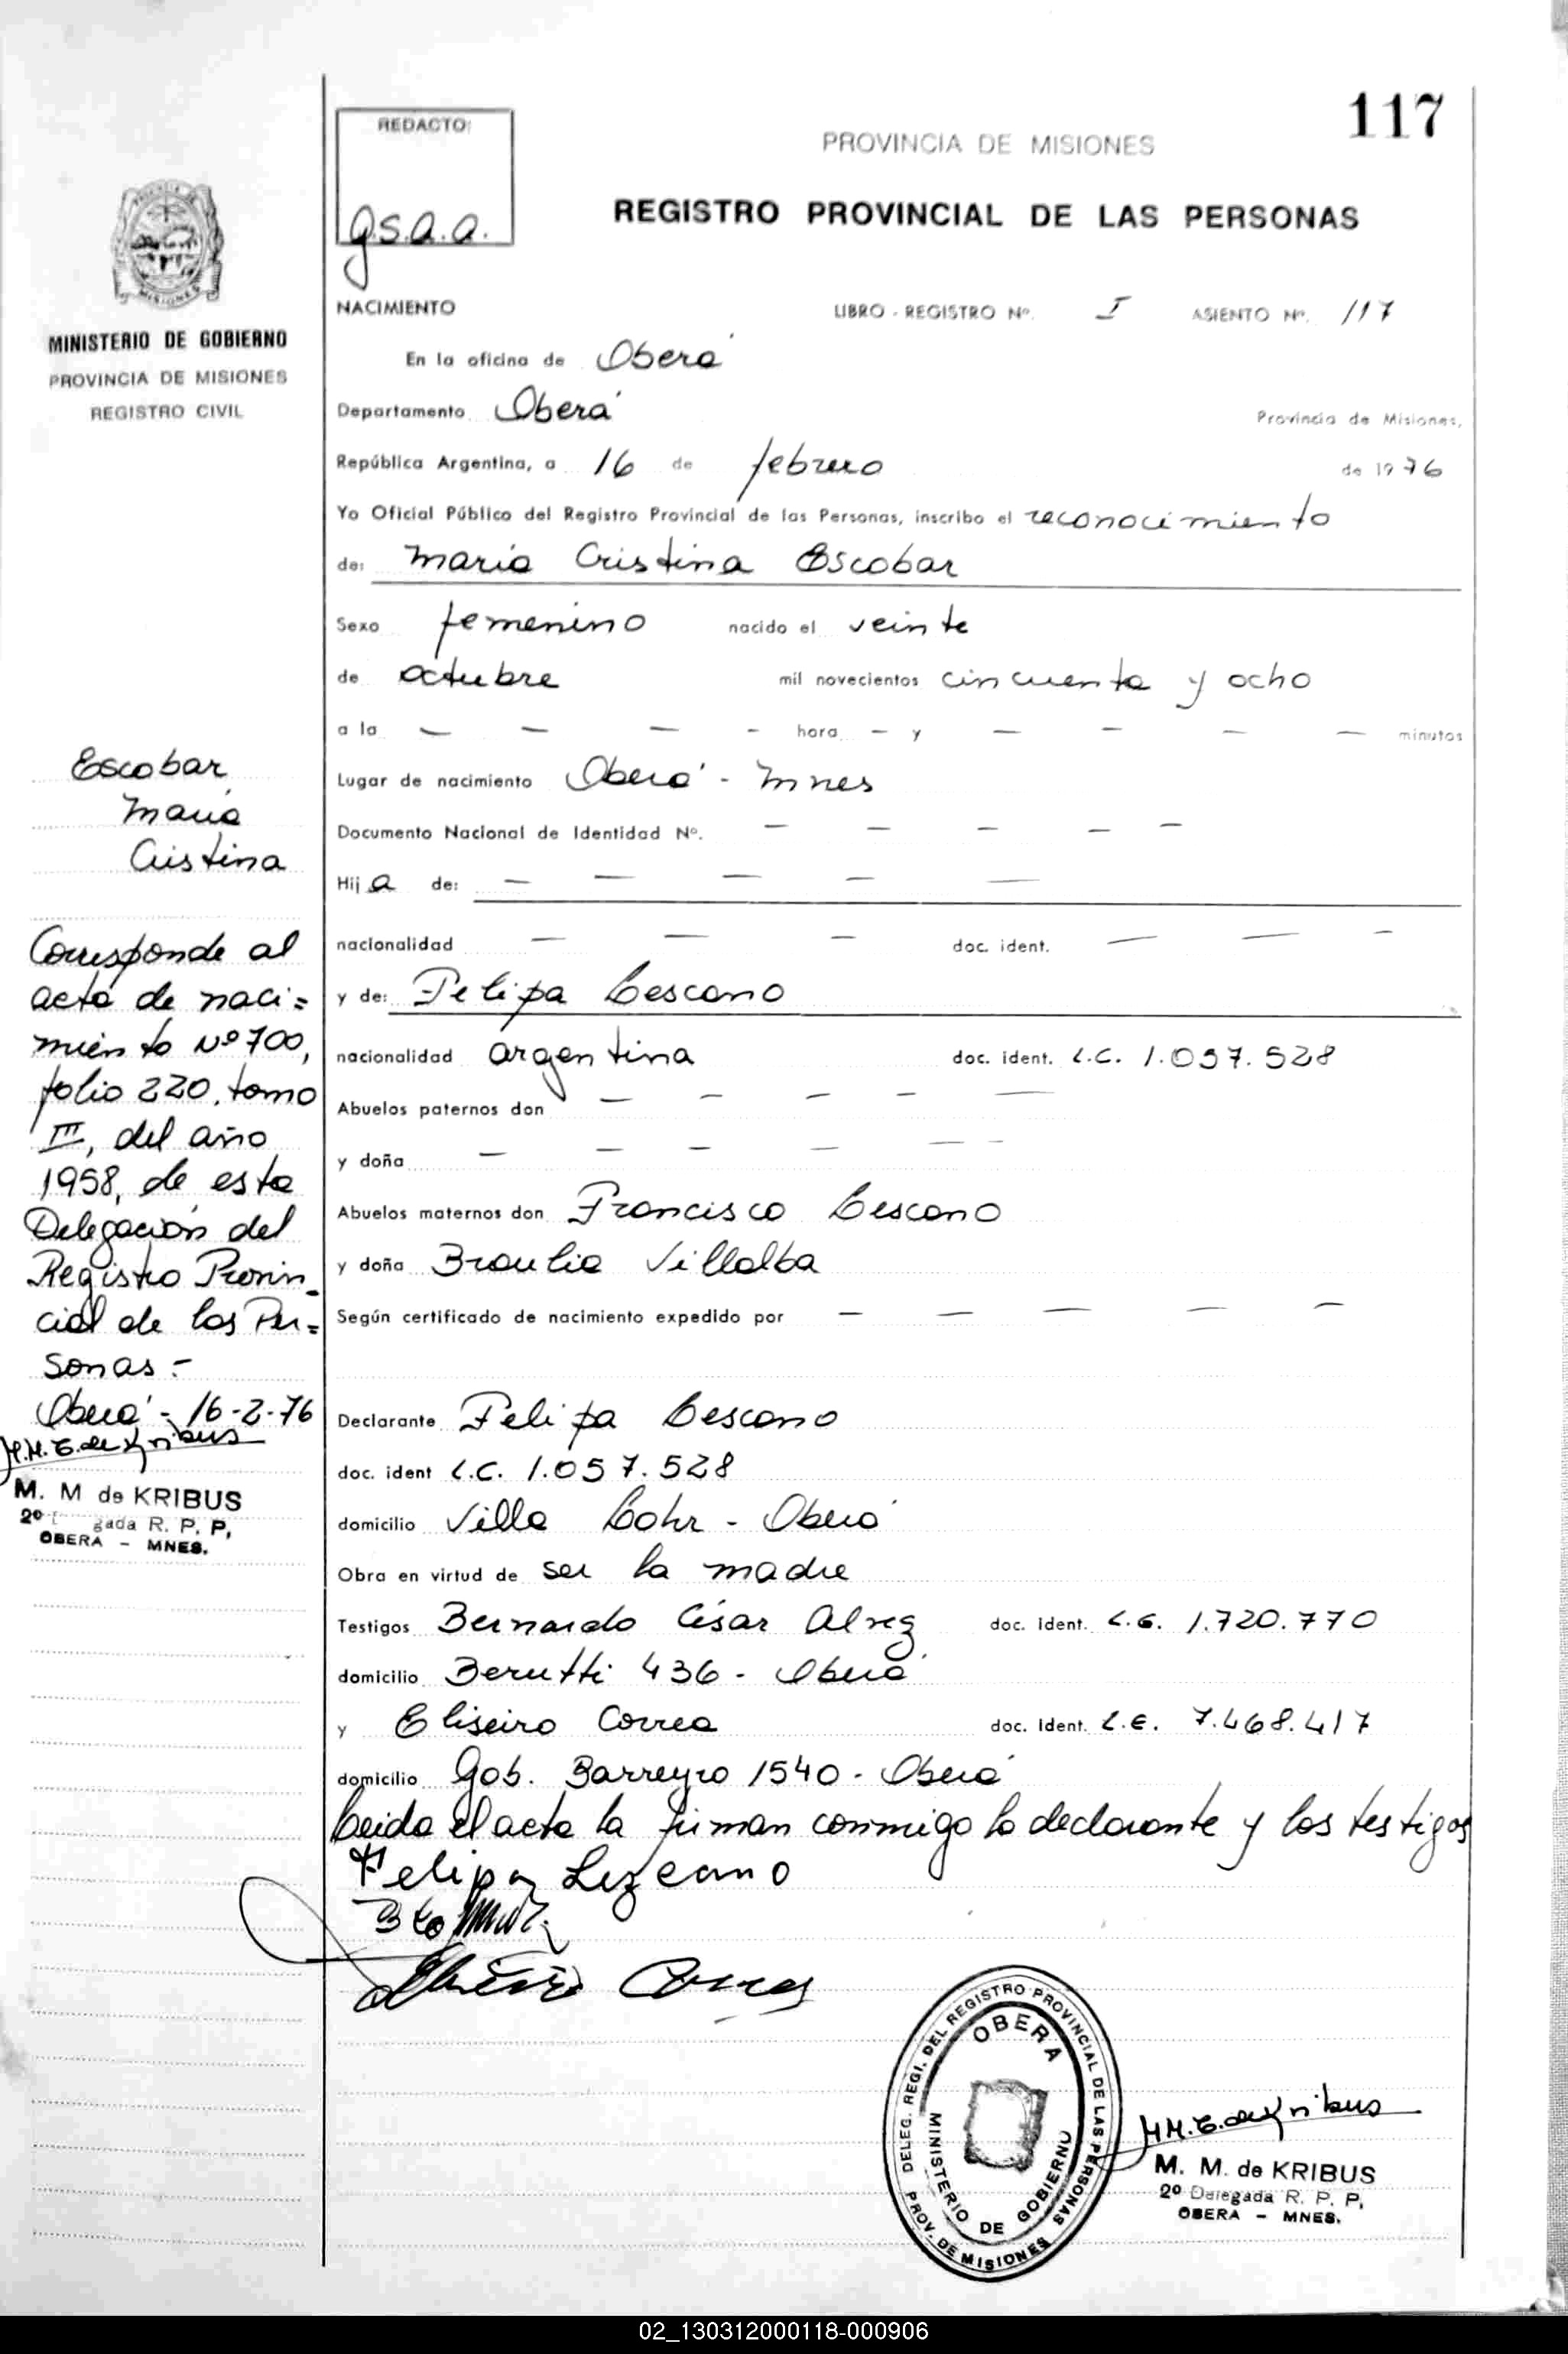 117
REDACTO:
g.s.a.a.
PROVINCIA DE MISIONES
REGISTRO PROVINCIAL DE LAS PERSONAS
MINISTERIO DE GOBIERNO
PROVINCIA DE MISIONES
REGISTRO CIVIL
NACIMIENTO LIBRO - REGISTRO Nº. I ASIENTO Nº. 117
En la oficina de Oberá
Departamento Oberá Provincia de Misiones,
República Argentina, a 16 de febrero de 1976
Yo Oficial Público del Registro Provincial de las Personas, inscribo el reconocimiento
de: María Cristina Escobar
Sexo femenino nacido el veinte
de octubre mil novecientos cincuenta y ocho
a la — — — - hora — y — — — — minutos
Lugar de nacimiento Oberá - Mnes
Documento Nacional de Identidad Nº. — — — — —
Hija de: — — — — —
nacionalidad — — — doc. ident. — — -
y de: Felipa Lescano
nacionalidad argentina doc. ident. L.C. 1.057.528
Abuelos paternos don — — — — —
y doña — — — — — —
Abuelos maternos don Francisco Lescano
y doña Braulia Villalba
Según certificado de nacimiento expedido por — — — — —
Declarante Felipa Lescano
doc. ident L.C. 1.057.528
domicilio Villa Lohr - Oberá
Obra en virtud de ser la madre
Testigos Bernardo César Alvez doc. ident. L.E. 1.720.770
domicilio Berutti 436 - Oberá
y Eliseiro Correa doc. Ident. L.E. 7.468.417
domicilio Gob. Barreyro 1540 - Oberá
Leída el acta la firman conmigo la declarante y los testigos
Felipa Lezcano
Escobar
María
Cristina
Corresponde al
acta de naci=
miento Nº 700,
folio 220, tomo
III, del año
1958, de esta
Delegación del
Registro Provin_
cial de las Per=
sonas -
Oberá - 16-2-76
M.M.E. de Kribus
M. M de KRIBUS
2º gada R. P. P,
OBERA - MNES.
DELEG. REGI. DEL REGISTRO PROVINCIAL DE LAS PERSONAS
OBERA
MINISTERIO DE GOBIERNO
PROV. DE MISIONES
M.M.E. de Kribus
M. M. de KRIBUS
2º Delegada R. P. P,
OBERA - MNES.
02_130312000118-000906